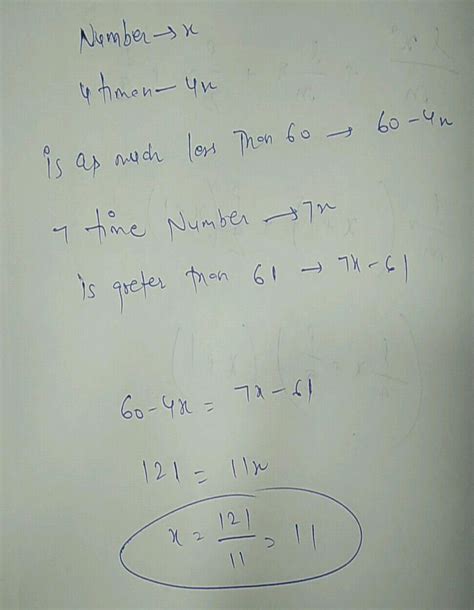 Number → x
4 timen — 4x
is as much less than 60 → 60 - 4x
7 time Number → 7x
is greter than 61 → 7x - 61
60 - 4x = 7x - 61
121 = 11x
x = 121/11 = 11